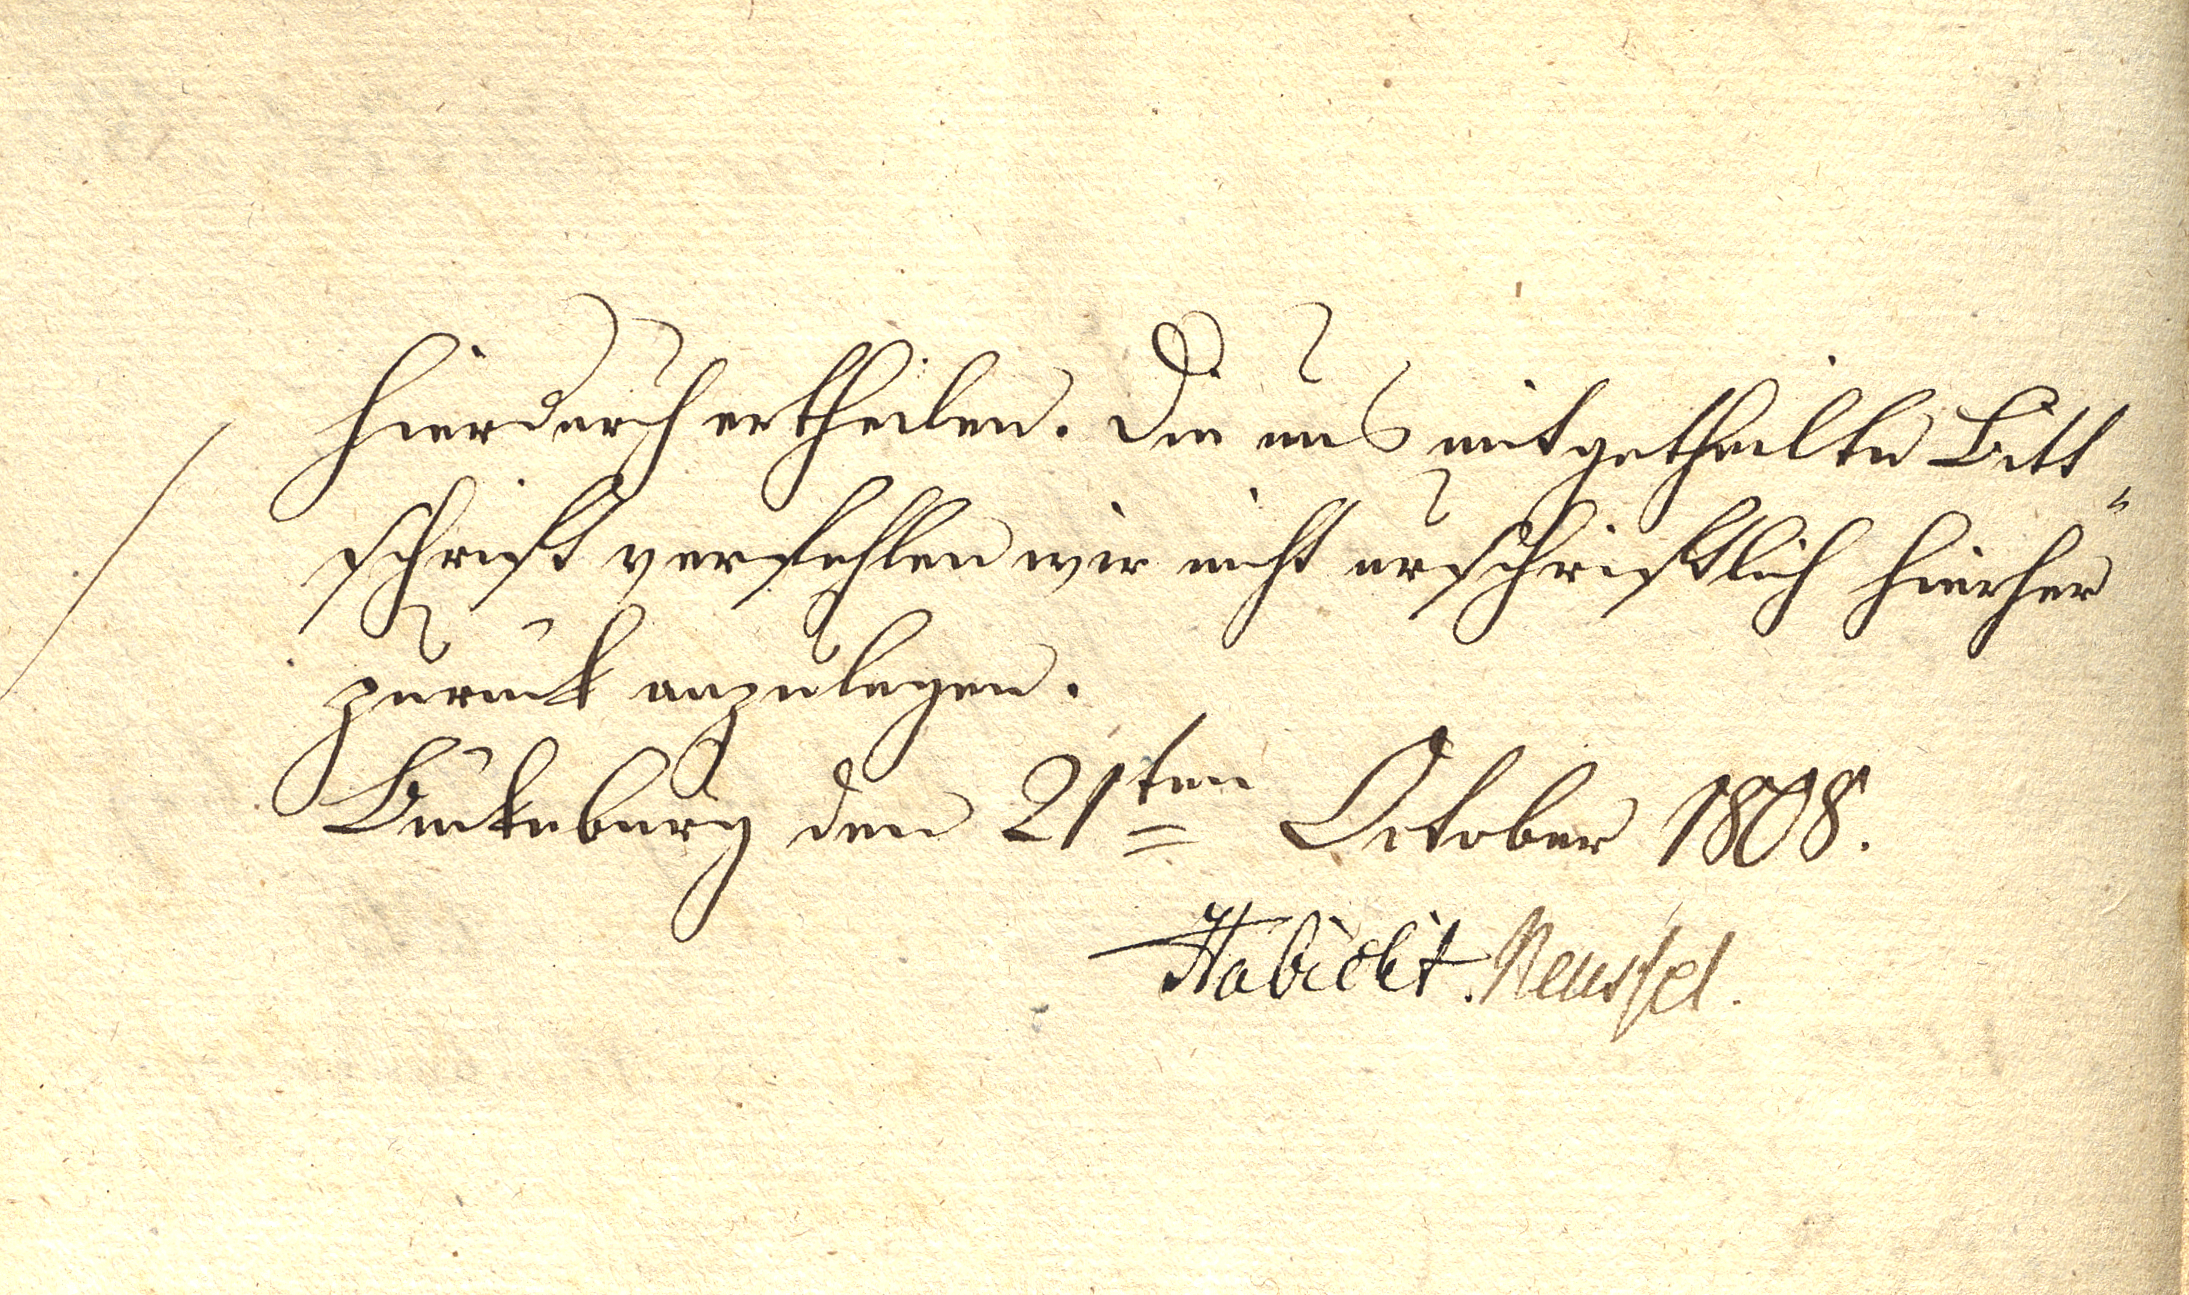 hierdurch ertheilen. Die uns mitgetheilte Bitt„
schrift verfehlen wir nicht urschriftlich hierher
zurück anzulegen.
Bückeburg den 21ten October 1808.
Habicht. Reussel.